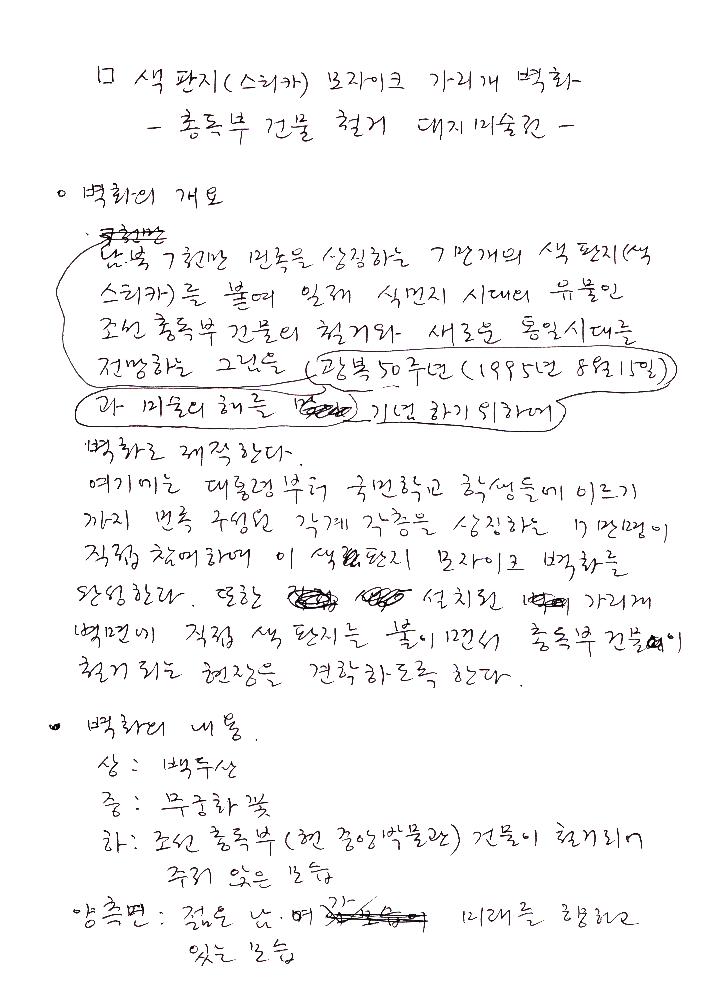 □ 색 판지(스티카) 모자이크 가리개 벽화
- 총독부 건물 철거 대지미술전 -
○ 벽화의 개요
남·북 7천만 민족을 상징하는 7만개의 색 판지(색
스티카)를 붙여 일제 식민지 시대의 유물인
조선 총독부 건물의 철거와 새로운 통일시대를
전망하는 그림을 (광복50주년(1995년 8월15일)
과 미술의 해를 기념 하기위하여
벽화로 제작한다.
여기에는 대통령부터 국민학교 학생들에 이르기
까지 민족 구성원 각계 각층을 상징하는 7만명이
직접 참여하여 이 색판지 모자이크 벽화를
완성한다. 또한 설치된 가리개
벽면에 직접 색 판지를 붙이면서 총독부 건물이
철거되는 현장을 견학하도록 한다.
● 벽화의 내용.
상: 백두산
중: 무궁화 꽃
하: 조선 총독부(현 중앙박물관) 건물이 철거되어
주저 앉은 모습
양측면: 젊은 남·여가 미래를 향하고
있는 모습